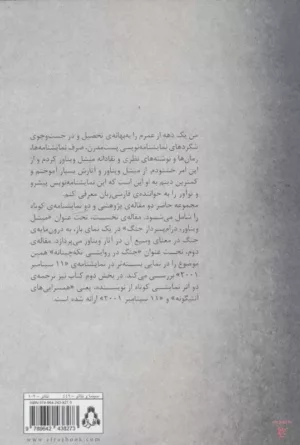 من یک دهه از عمرم را به‌بهانه‌ی تحصیل و در جست‌وجوی
شگردهای نمایشنامه‌نویسی پست‌مدرن، صرف نمایشنامه‌ها،
رمان‌ها و نوشته‌های نظری و نقادانه میشل ویناور کردم و از
این امر خشنودم. از میشل ویناور و آثارش بسیار آموختم و
کمترین دینم به او این است که این نمایشنامه‌نویس پیشرو
و نوآور را به خواننده‌ی فارسی‌زبان معرفی کنم.
مجموعه حاضر دو مقاله‌ی پژوهشی و دو نمایشنامه‌ی کوتاه
را شامل می‌شود. مقاله‌ی نخست، تحت عنوان «میشل
ویناور، درام‌پرداز جنگ» در یک نمای باز، به درون‌مایه‌ی
جنگ در معنای وسیع آن در آثار ویناور می‌پردازد. مقاله‌ی
دوم، تحت عنوان «جنگ در روایتی تکه‌چینانه» همین
موضوع را در نمایی بسته‌تر در نمایشنامه‌ی «۱۱ سپتامبر
۲۰۰۱» بررسی می‌کند. در بخش دوم کتاب نیز ترجمه‌ی
دو اثر نمایشی کوتاه از نویسنده، یعنی «همسرایی‌های
آنتیگونه» و «۱۱ سپتامبر ۲۰۰۱» ارائه شده است.
www.afrazbook.com